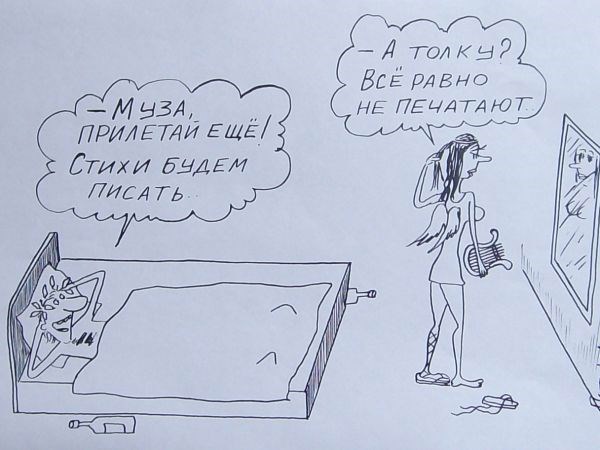 – МУЗА,
ПРИЛЕТАЙ ЕЩЁ!
СТИХИ БУДЕМ
ПИСАТЬ..
– А ТОЛКУ?
ВСЁ РАВНО
НЕ ПЕЧАТАЮТ..